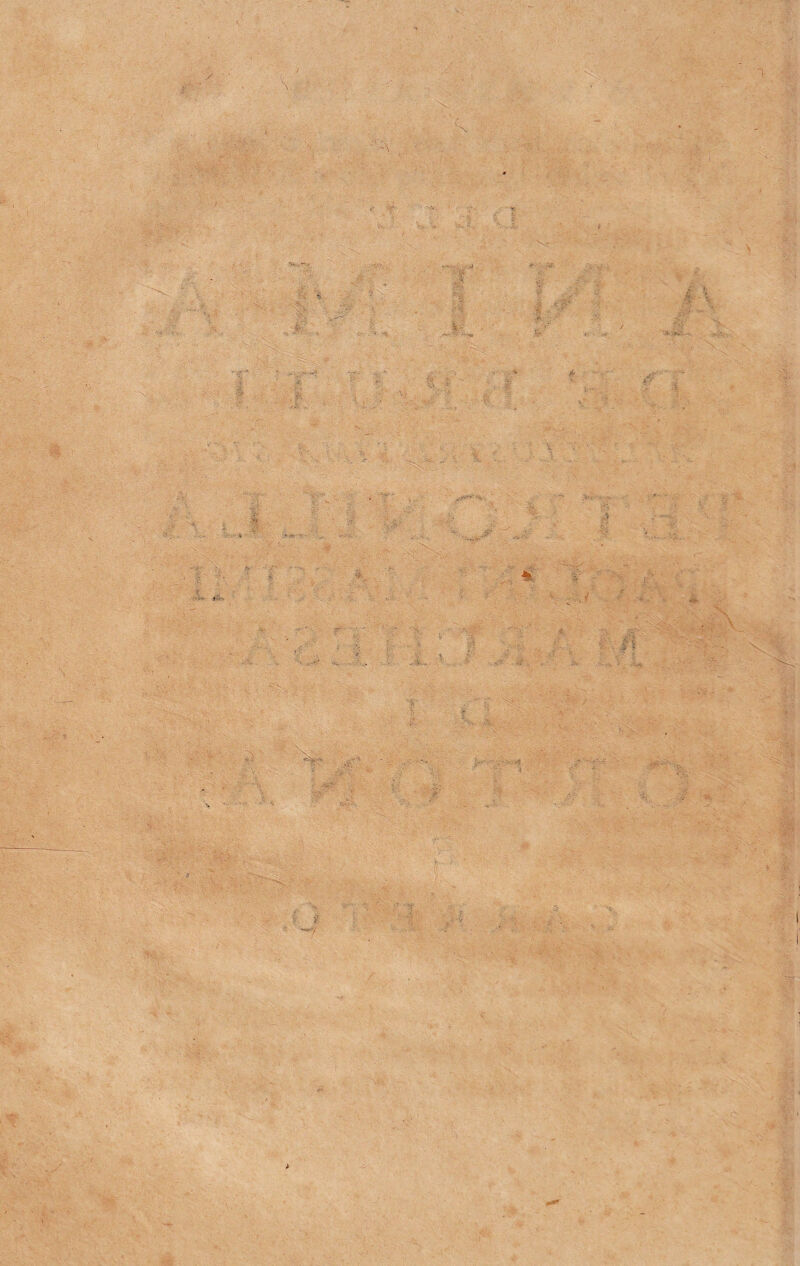 DELL'
ANIMA
DE' BRUTI
PETRONILLA
PAOLINI MASSIMI
MARCHESA
DI
ORTONA
E
CARRETO.